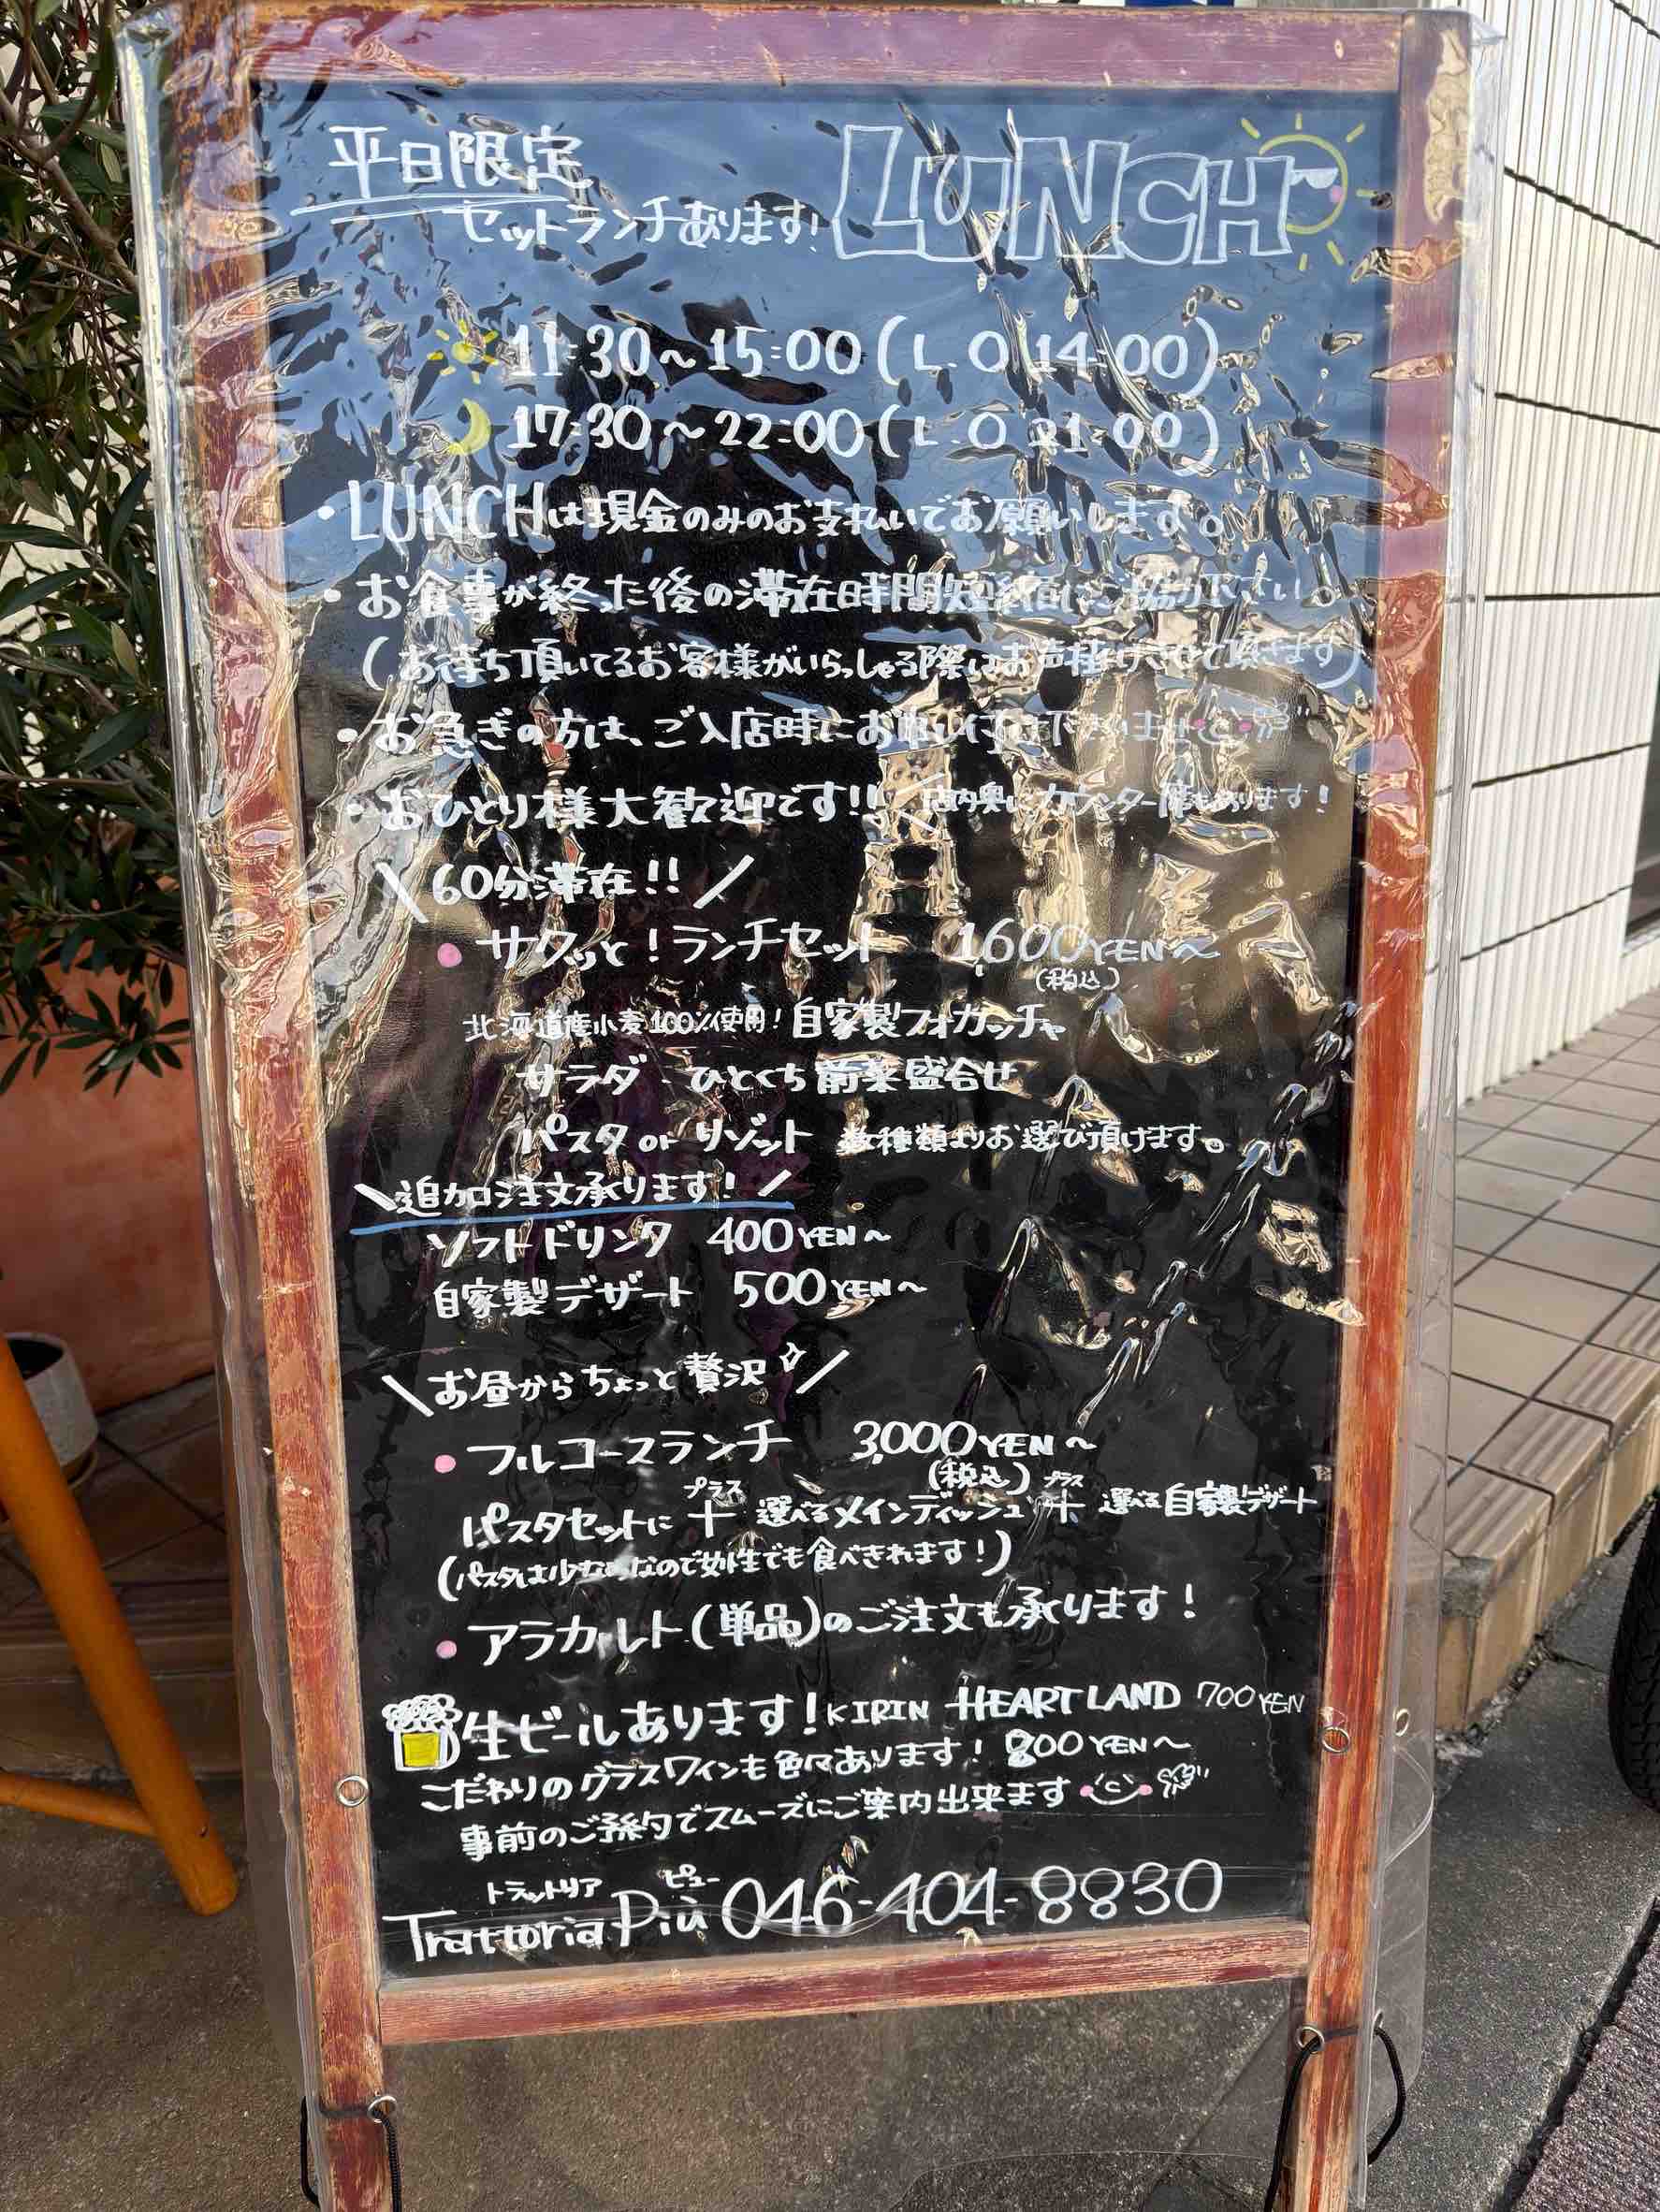 平日限定 LUNCH
セットランチあります!
11:30～15:00(L.O 14:00)
17:30～22:00(L.O 21:00)
・LUNCHは現金のみのお支払いでお願いします。
・お食事が終った後の滞在時間短縮にご協力下さい。
(お待ち頂いてるお客様がいらっしゃる際はお声掛けさせて頂きます)
・お急ぎの方は、ご入店時にお申し付け下さいませ
・おひとり様大歓迎です!! 店内奥にカウンター席もあります!
\60分滞在!!/
・サクッと!ランチセット 1,600YEN～
(税込)
北海道産小麦100%使用!自家製フォカッチャ
サラダ・ひとくち前菜盛合せ
パスタ or リゾット 数種類よりお選び頂けます。
\追加注文承ります!/
ソフトドリンク 400YEN～
自家製デザート 500YEN～
\お昼からちょっと贅沢/
・フルコースランチ 3,000YEN～
(税込)
プラス プラス
パスタセットに + 選べるメインディッシュ + 選べる自家製デザート
(パスタは少なめなので女性でも食べきれます!)
・アラカルト(単品)のご注文も承ります!
生ビールあります! KIRIN HEARTLAND 700YEN
こだわりのグラスワインも色々あります! 800YEN～
事前のご予約でスムーズにご案内出来ます
トラットリア ピュー
Trattoria Più 046-404-8830